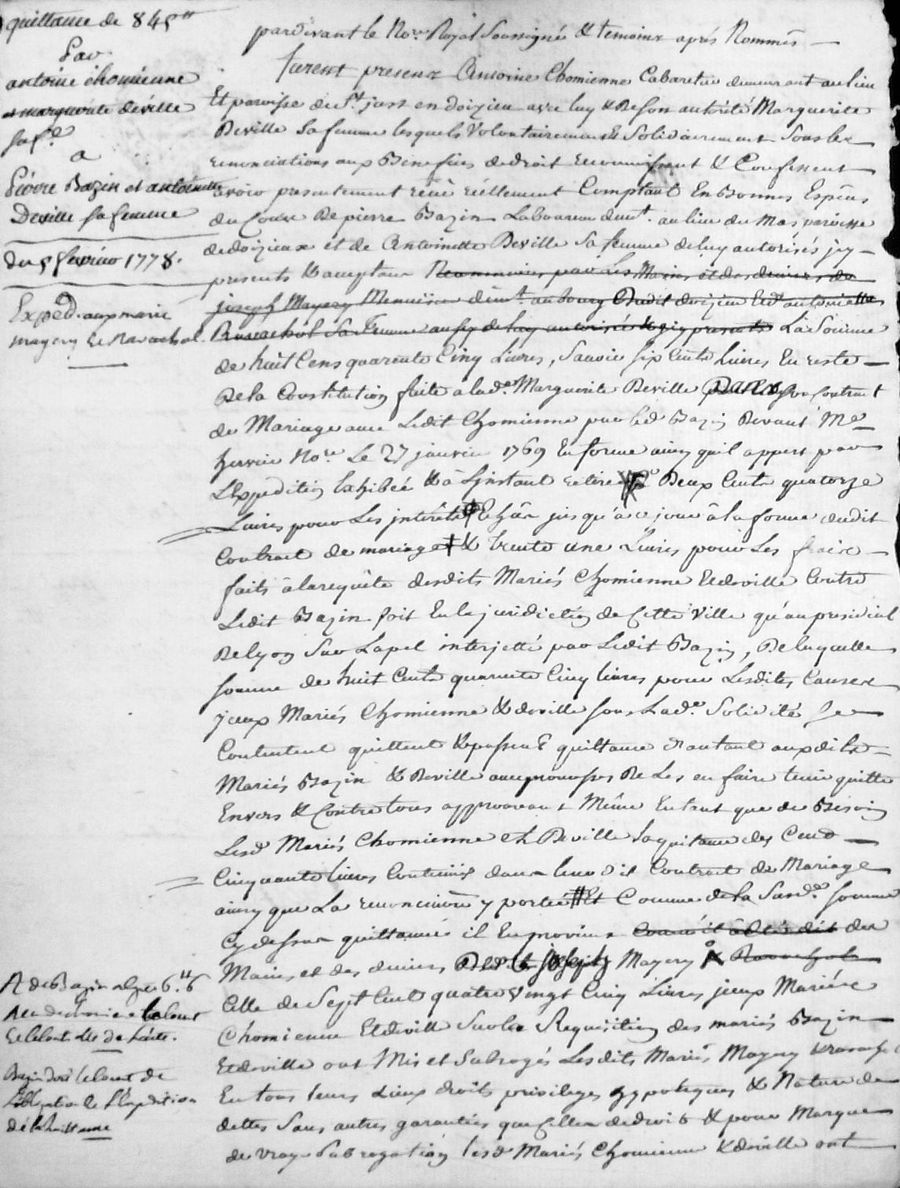 quittance de 845ᵗᵗ
Par
antoine chomienne
et marguerite deville
sa fᵉ
a
Pierre Bazin et antoinette
Deville sa femme
du 5 fevrier 1778.
Exped. aux marie
mayery et Ravachol.
pardevant le Noʳᵉ Royal Soussigné & temoins aprés Nommés
furent presens Antoine Chomienne Cabaretier demeurant au lieu
Et paroisse de Sᵗ just en doizieu avec luy & De son autorité Marguerite
Deville sa femme lesquels Volontairement & Solidairement Sous les
renonciations aux Benefices de droit reconnoissent & Confessent
avoir presentement reçu réellement Comptant En Bonnes Espèces
du Cours De pierre Bazin Laboureur demᵗ. au lieu du Mas paroisse
de doizieux et de Antoinette Deville sa femme de luy autorisée icy
presents & acceptans Reconnoises par les Mains et des deniers de
joseph Mayery Menuisier demᵗ. au bourg Dudit doizieu Et d'antoinette
Ravachol Sa femme aussy de luy autorisée & icy presents La Somme
de huit Cens quarente Cinq Livres, Savoir six Cents livres En reste
De la Constitution faite à lad. Marguerite Deville Dans son Contrat
de Mariage avec Ledit Chomienne par led. Bazin Devant Mᵉ
Noʳᵉ Le 27 janvier 1769 En forme ainsy qu'il appert par
L'Expedition Exhibée & à l'instant retirée Deux Cents quatorze
Livres pour Les intérêts Echûs jusqu'à ce jour à la forme dudit
Contrat de mariage & trente une Livres pour Les fraix
faits à la requête desdits Mariés Chomienne Et deville Contre
Ledit Bazin soit En la juridiction de Cette Ville qu'au presidial
De lyon Sur Lapel interjetté par Ledit Bazin, De laquelle
somme de huit Cents quarente Cinq livres pour Lesdites Causes
jceux Mariés Chomienne & deville sous Lade. Solidité Se
Contentent quittent & passent quittance d'autant auxdits
Mariés Bazin & Deville avec promesses De Les en faire tenir quitte
Envers & Contre tous approuvant Même En tant que de Besoin
Lesd. Mariés Chomienne et Deville La quittance des Cent
Cinquante livres Contenüe dans leur dit Contrat de Mariage
ainsy que La renonciation y portée Et Comme de la Susde. somme
Cy dessus quittancée il En provient des
Mains et des deniers Dud. joseph Mayery & Ravachol
Celle de Sept Cent quatre vingt Cinq Livres jceux Mariés
Chomienne Et deville Sur la Requisition des mariés Bazin
Et deville ont Mis et Subrogés Lesdits Mariés Mayery & ravachol
En tous leurs Lieux droits privileges hypoteques & Nature de
dettes Sans autres garanties que Celles de droit & pour Marque
de vraye Subrogation lesd. Mariés Chomienne & deville ont
R. de Bazin 6ᵗᵗ. 6